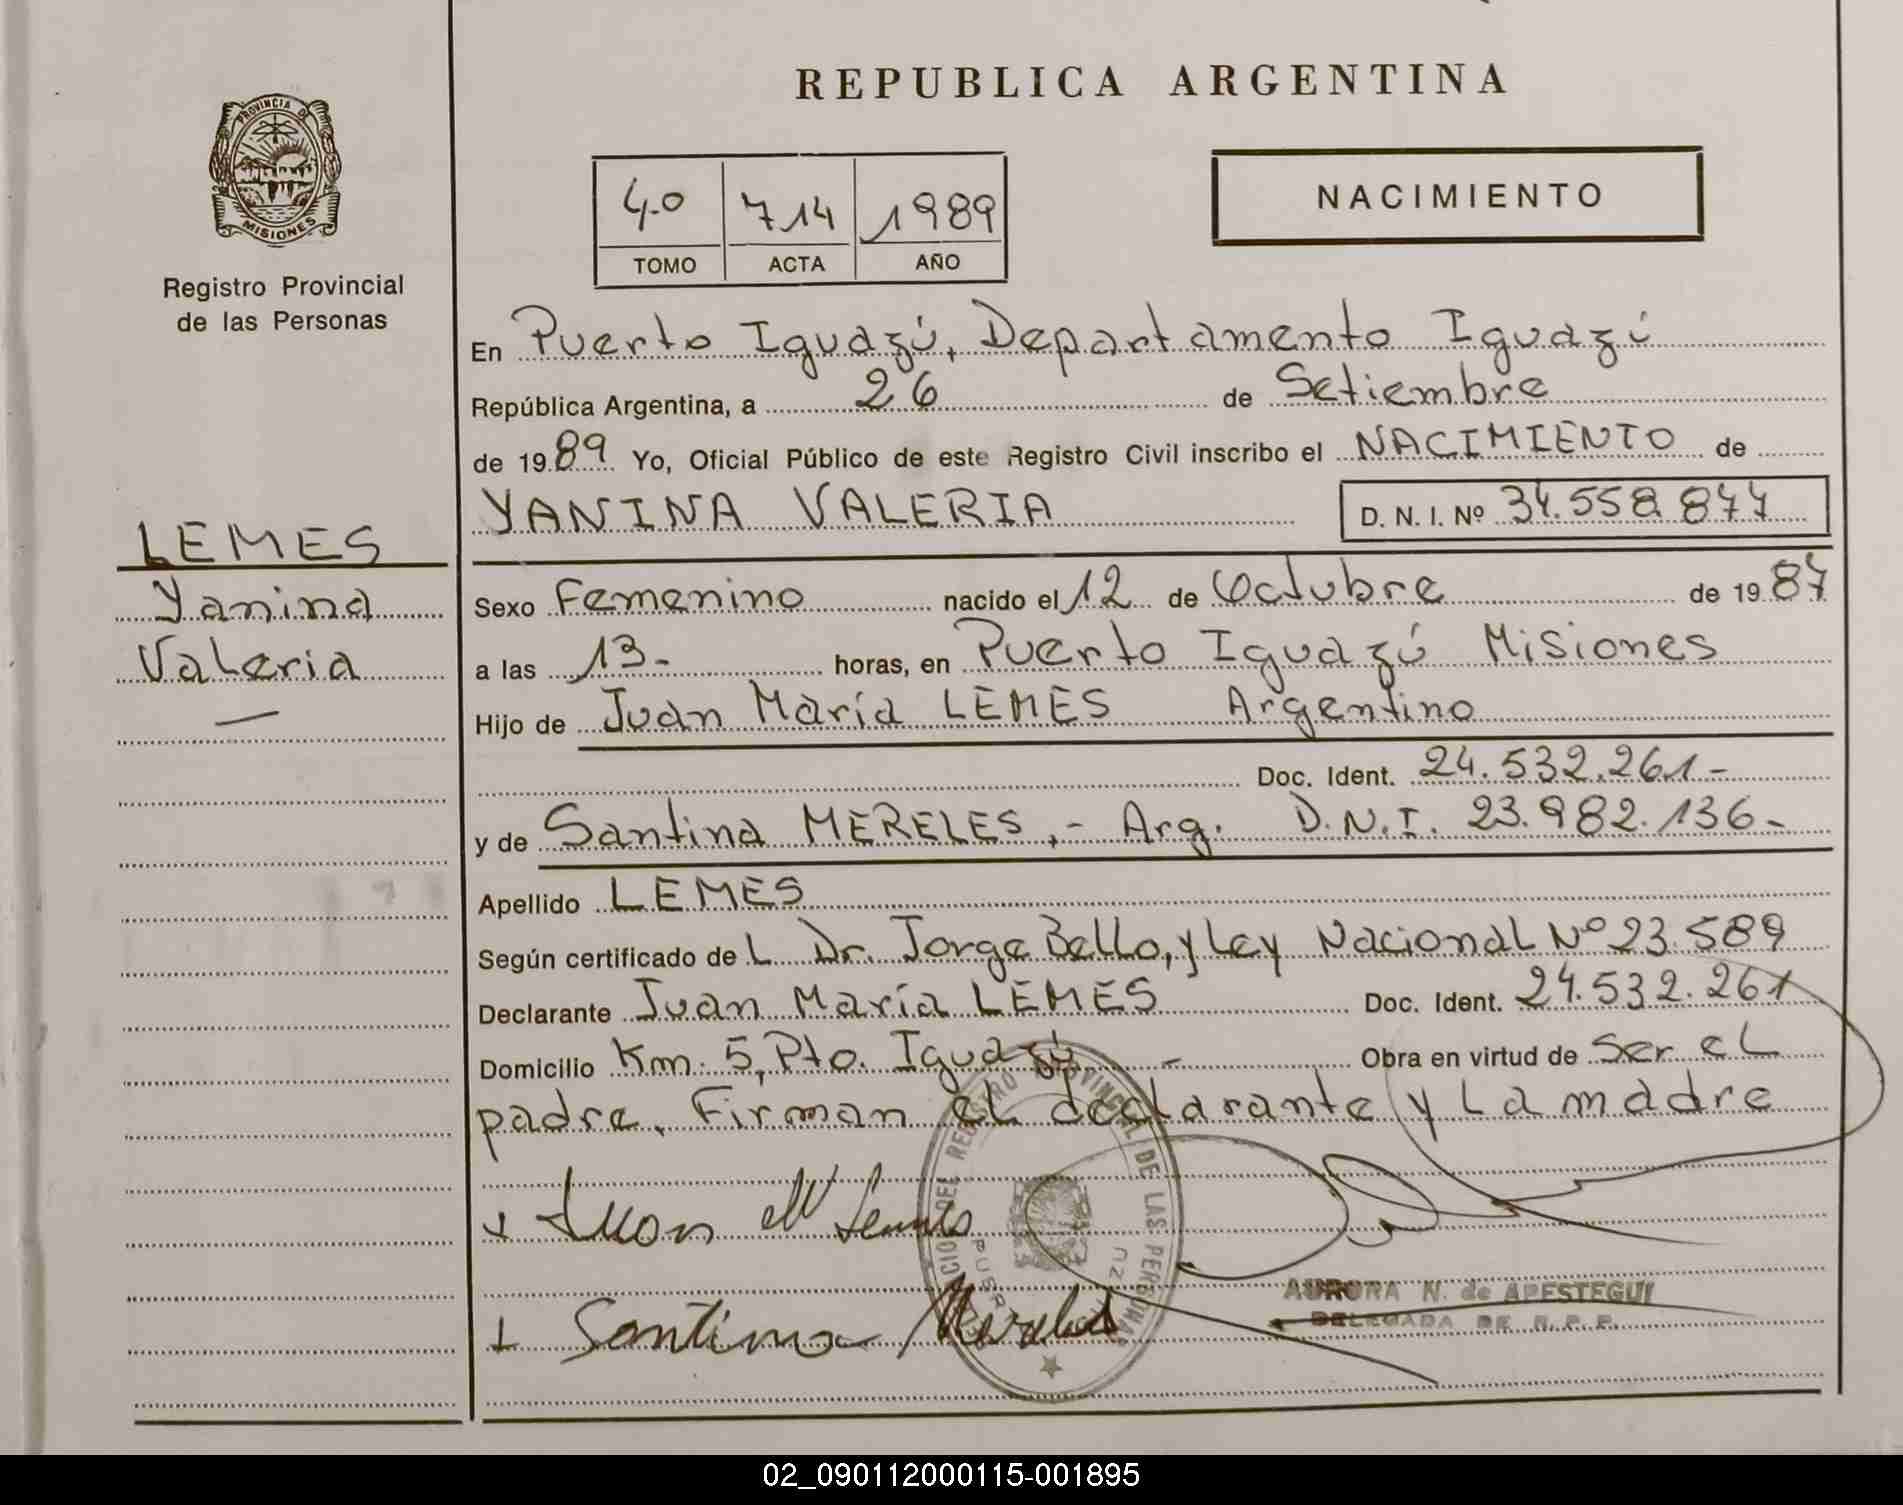 REPUBLICA ARGENTINA
PROVINCIA DE
MISIONES
Registro Provincial
de las Personas
NACIMIENTO
4.0 714 1989
TOMO ACTA AÑO
En Puerto Iguazú, Departamento Iguazú
República Argentina, a 26 de Setiembre
de 1989 Yo, Oficial Público de este Registro Civil inscribo el NACIMIENTO de
YANINA VALERIA D. N. I. Nº 34.558.877
LEMES
Yanina
Valeria
Sexo Femenino nacido el 12 de Octubre de 1987
a las 13- horas, en Puerto Iguazú Misiones
Hijo de Juan María LEMES Argentino
Doc. Ident. 24.532.261-
y de Santina MERELES.- Arg. D.N.I. 23.982.136-
Apellido LEMES
Según certificado de L Dr. Jorge Bello, y Ley Nacional Nº 23.589
Declarante Juan María LEMES Doc. Ident. 24.532.261
Domicilio Km. 5, Pto. Iguazú - Obra en virtud de Ser el
padre. Firman el declarante y La madre
REGISTRO PROVINCIAL DE LAS PERSONAS
+ Juan Mª Lemes
+ Santina Mereles
AURORA N. de APESTEGUI
DELEGADA DE R. P. P.
02_090112000115-001895